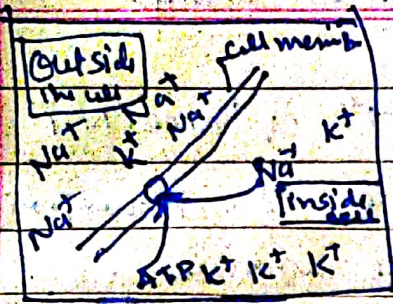 Outside
the cell
cell memb
Na⁺
Na⁺
Na⁺
K⁺
K⁺
Na⁺
Na⁺
inside
cell
ATP K⁺ K⁺ K⁺